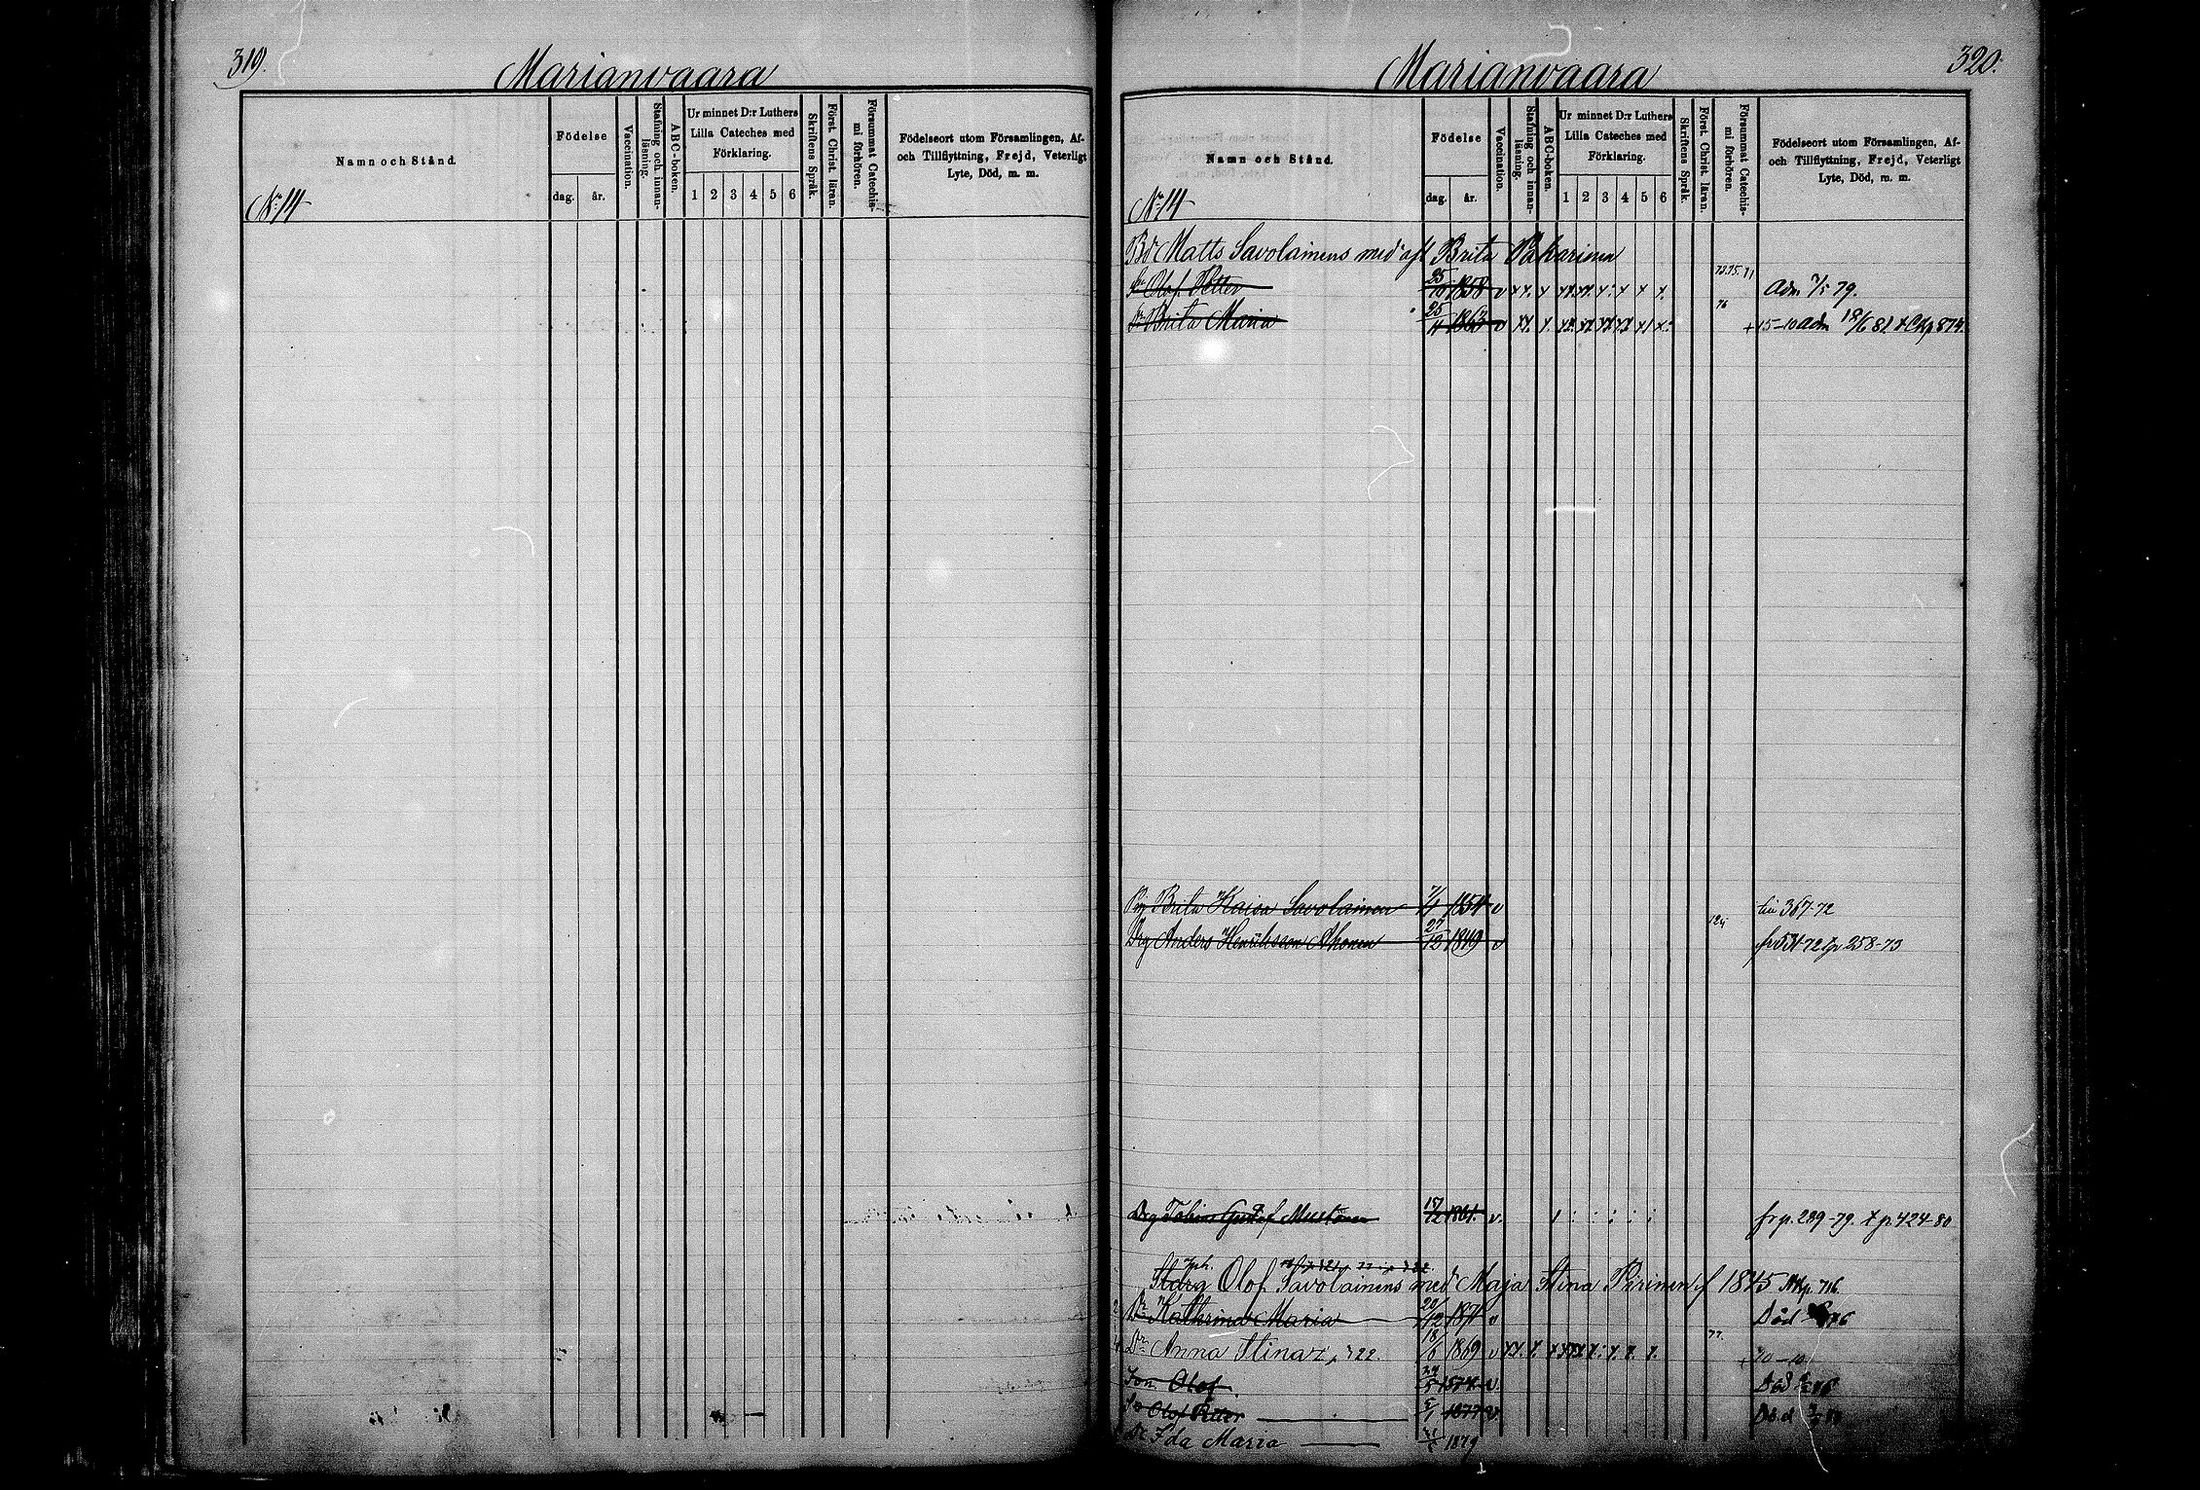 319.
Marianvaara
Namn och Stånd.
Födelse
dag. år.
Vaccination.
Stafning och innan-läsning.
ABC-boken.
Ur minnet D:r Luthers
Lilla Cateches med
Förklaring.
1 2 3 4 5 6
Skriftens Språk.
Först. Christ. läran.
Försummat Catechis-mi förhören.
Födelseort utom Församlingen, Af-
och Tillflyttning, Frejd, Veterligt
Lyte, Död, m. m.
No 14
320.
Marianvaara
Namn och Stånd.
Födelse
dag. år.
Vaccination.
Stafning och innan-läsning.
ABC-boken.
Ur minnet D:r Luthers
Lilla Cateches med
Förklaring.
1 2 3 4 5 6
Skriftens Språk.
Först. Christ. läran.
Försummat Catechis-mi förhören.
Födelseort utom Församlingen, Af-
och Tillflyttning, Frejd, Veterligt
Lyte, Död, m. m.
No 14
Bd Matts Savolainens med afl Brita Pakarinen
Sn Olof Petter 25/10 1858 v Adm 79.
Dr Brita Maria 25/11 1863 v 76 +15-10 Adm 18/6 81
Brita Kaisa Savolainen 1854 v 367-72
Drg Anders Henriksson Ahonen 27/12 1849 v 72 258-73
Drg Tobias Gustaf Mustonen 12 1861. v. fr p. 289-79. t p. 424-80
Olof Savolainens med Maja Stina Pirinen f 1845
Dr Kathrina Maria 20/12 1871 v Död 76
Dr Anna Stina 322. 18/6 1869 v 77. 70-10
Son Olof v. Död
Sn Olof Petter 5/1 1877 v. Död
Dr Ida Maria 1879